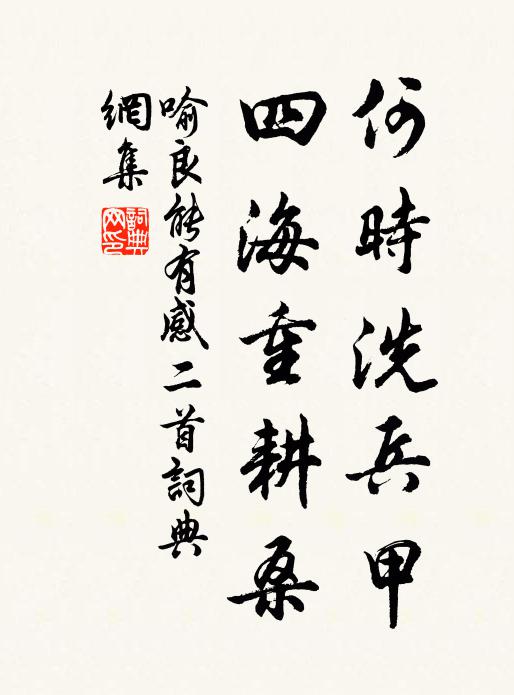 何時洗兵甲
四海重耕桑
喻良能有感二首詞典
網集
詞典网印